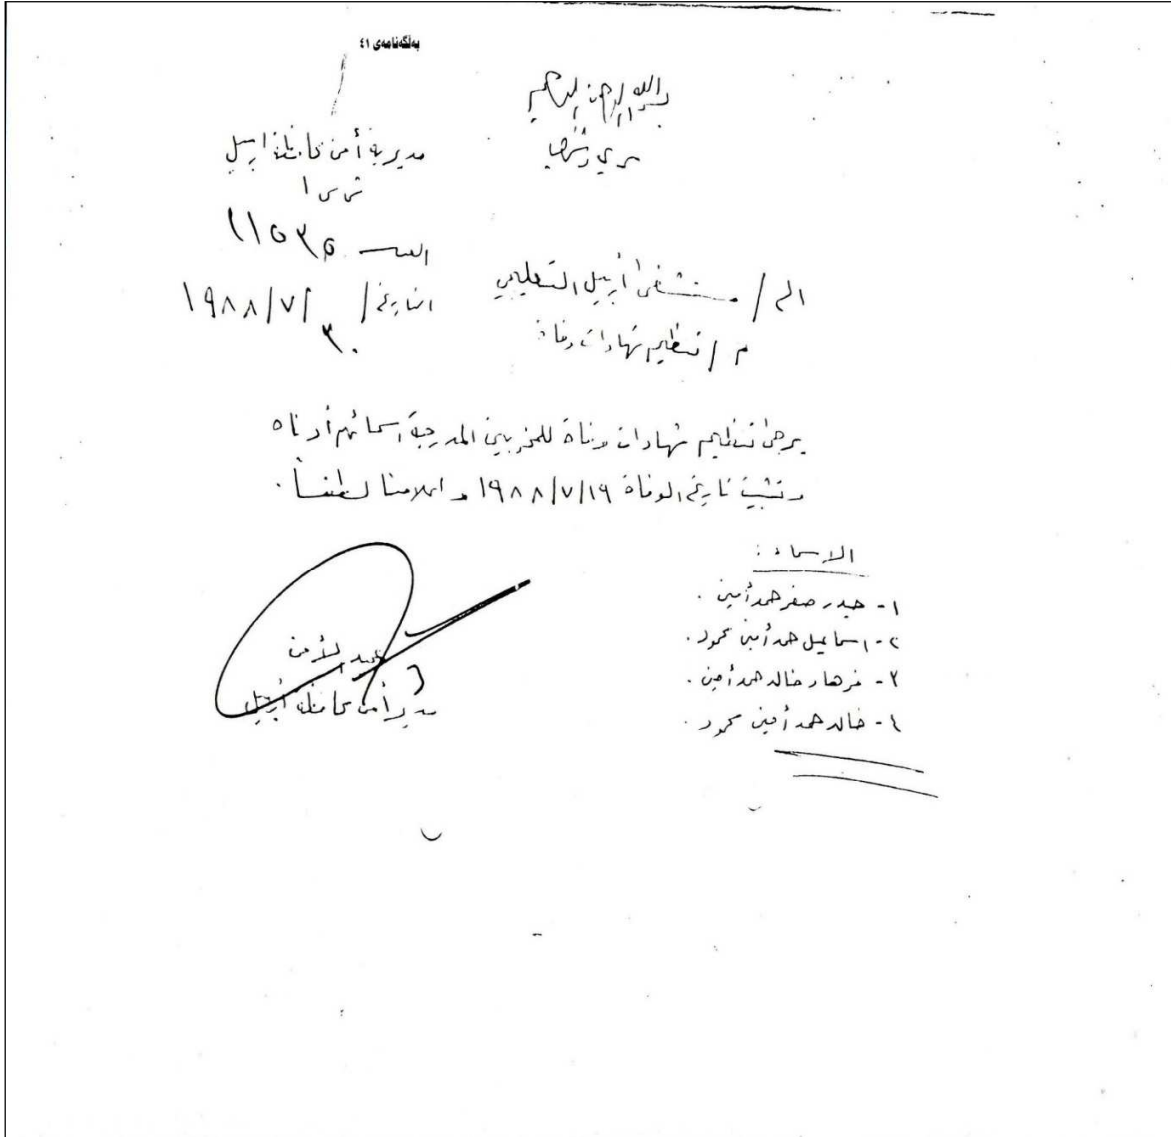 بەڵگەنامەی ٤١
بسم الله الرحمن الرحيم
سري وشخصي
مديرية أمن محافظة اربيل
ش س ١
العدد
التاريخ / ٣٠ /٧/ ١٩٨٨
الى / مستشفى أربيل التعليمي
م / تنظيم شهادات وفاة
يرجى تنظيم شهادات وفاة للمخربين المدرجة اسمائهم أدناه
وتثبيت تاريخ الوفاة ١٩٨٨/٧/١٩ واعلامنا لطفاً .
الاسماء :
١- حيدر صفر حمد أمين .
٢- اسماعيل حمد أمين محمود .
٣- فرهاد خالد حمد أمين .
٤- خالد حمد أمين محمود .
عميد الأمن
مدير أمن محافظة أربيل